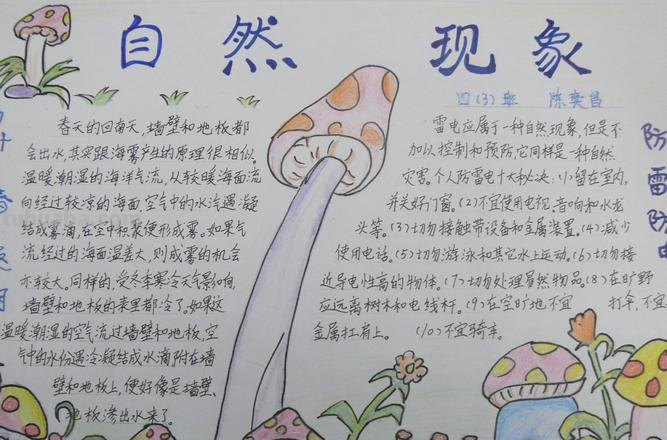 自然现象
四(3)班 陈奕昌
春天的回南天,墙壁和地板都
会出水,其实跟海雾产生的原理很相似。
温暖潮湿的海洋气流,从较暖海面流
向经过较凉的海面,空气中的水汽遇凝
结成雾滴,在空中积聚便形成雾。如果气
流经过的海面温差大,则成雾的机会
亦较大。同样的,受冬季寒冷天气影响,
墙壁和地板的表里都冷了。如果这
温暖潮湿的空气流过墙壁和地板,空
气中的水份遇冷凝结成水滴附在墙
壁和地板上,便好像是墙壁、
地板渗出水来了。
雷电应属于一种自然现象,但是不
加以控制和预防,它同样是一种自然
灾害。个人防雷电十大秘决:(1)留在室内,
并关好门窗。(2)不宜使用电视、音响和水龙
头等。(3)切勿接触带设备和金属装置。(4)减少
使用电话。(5)切勿游泳和其它水上运动。(6)切勿接
近导电性高的物体。(7)切勿处理易然物品。(8)在旷野
应远离树木和电线杆。(9)在空旷地不宜 打伞,不宜
金属扛肩上。 (10)不宜骑车。
防雷防电